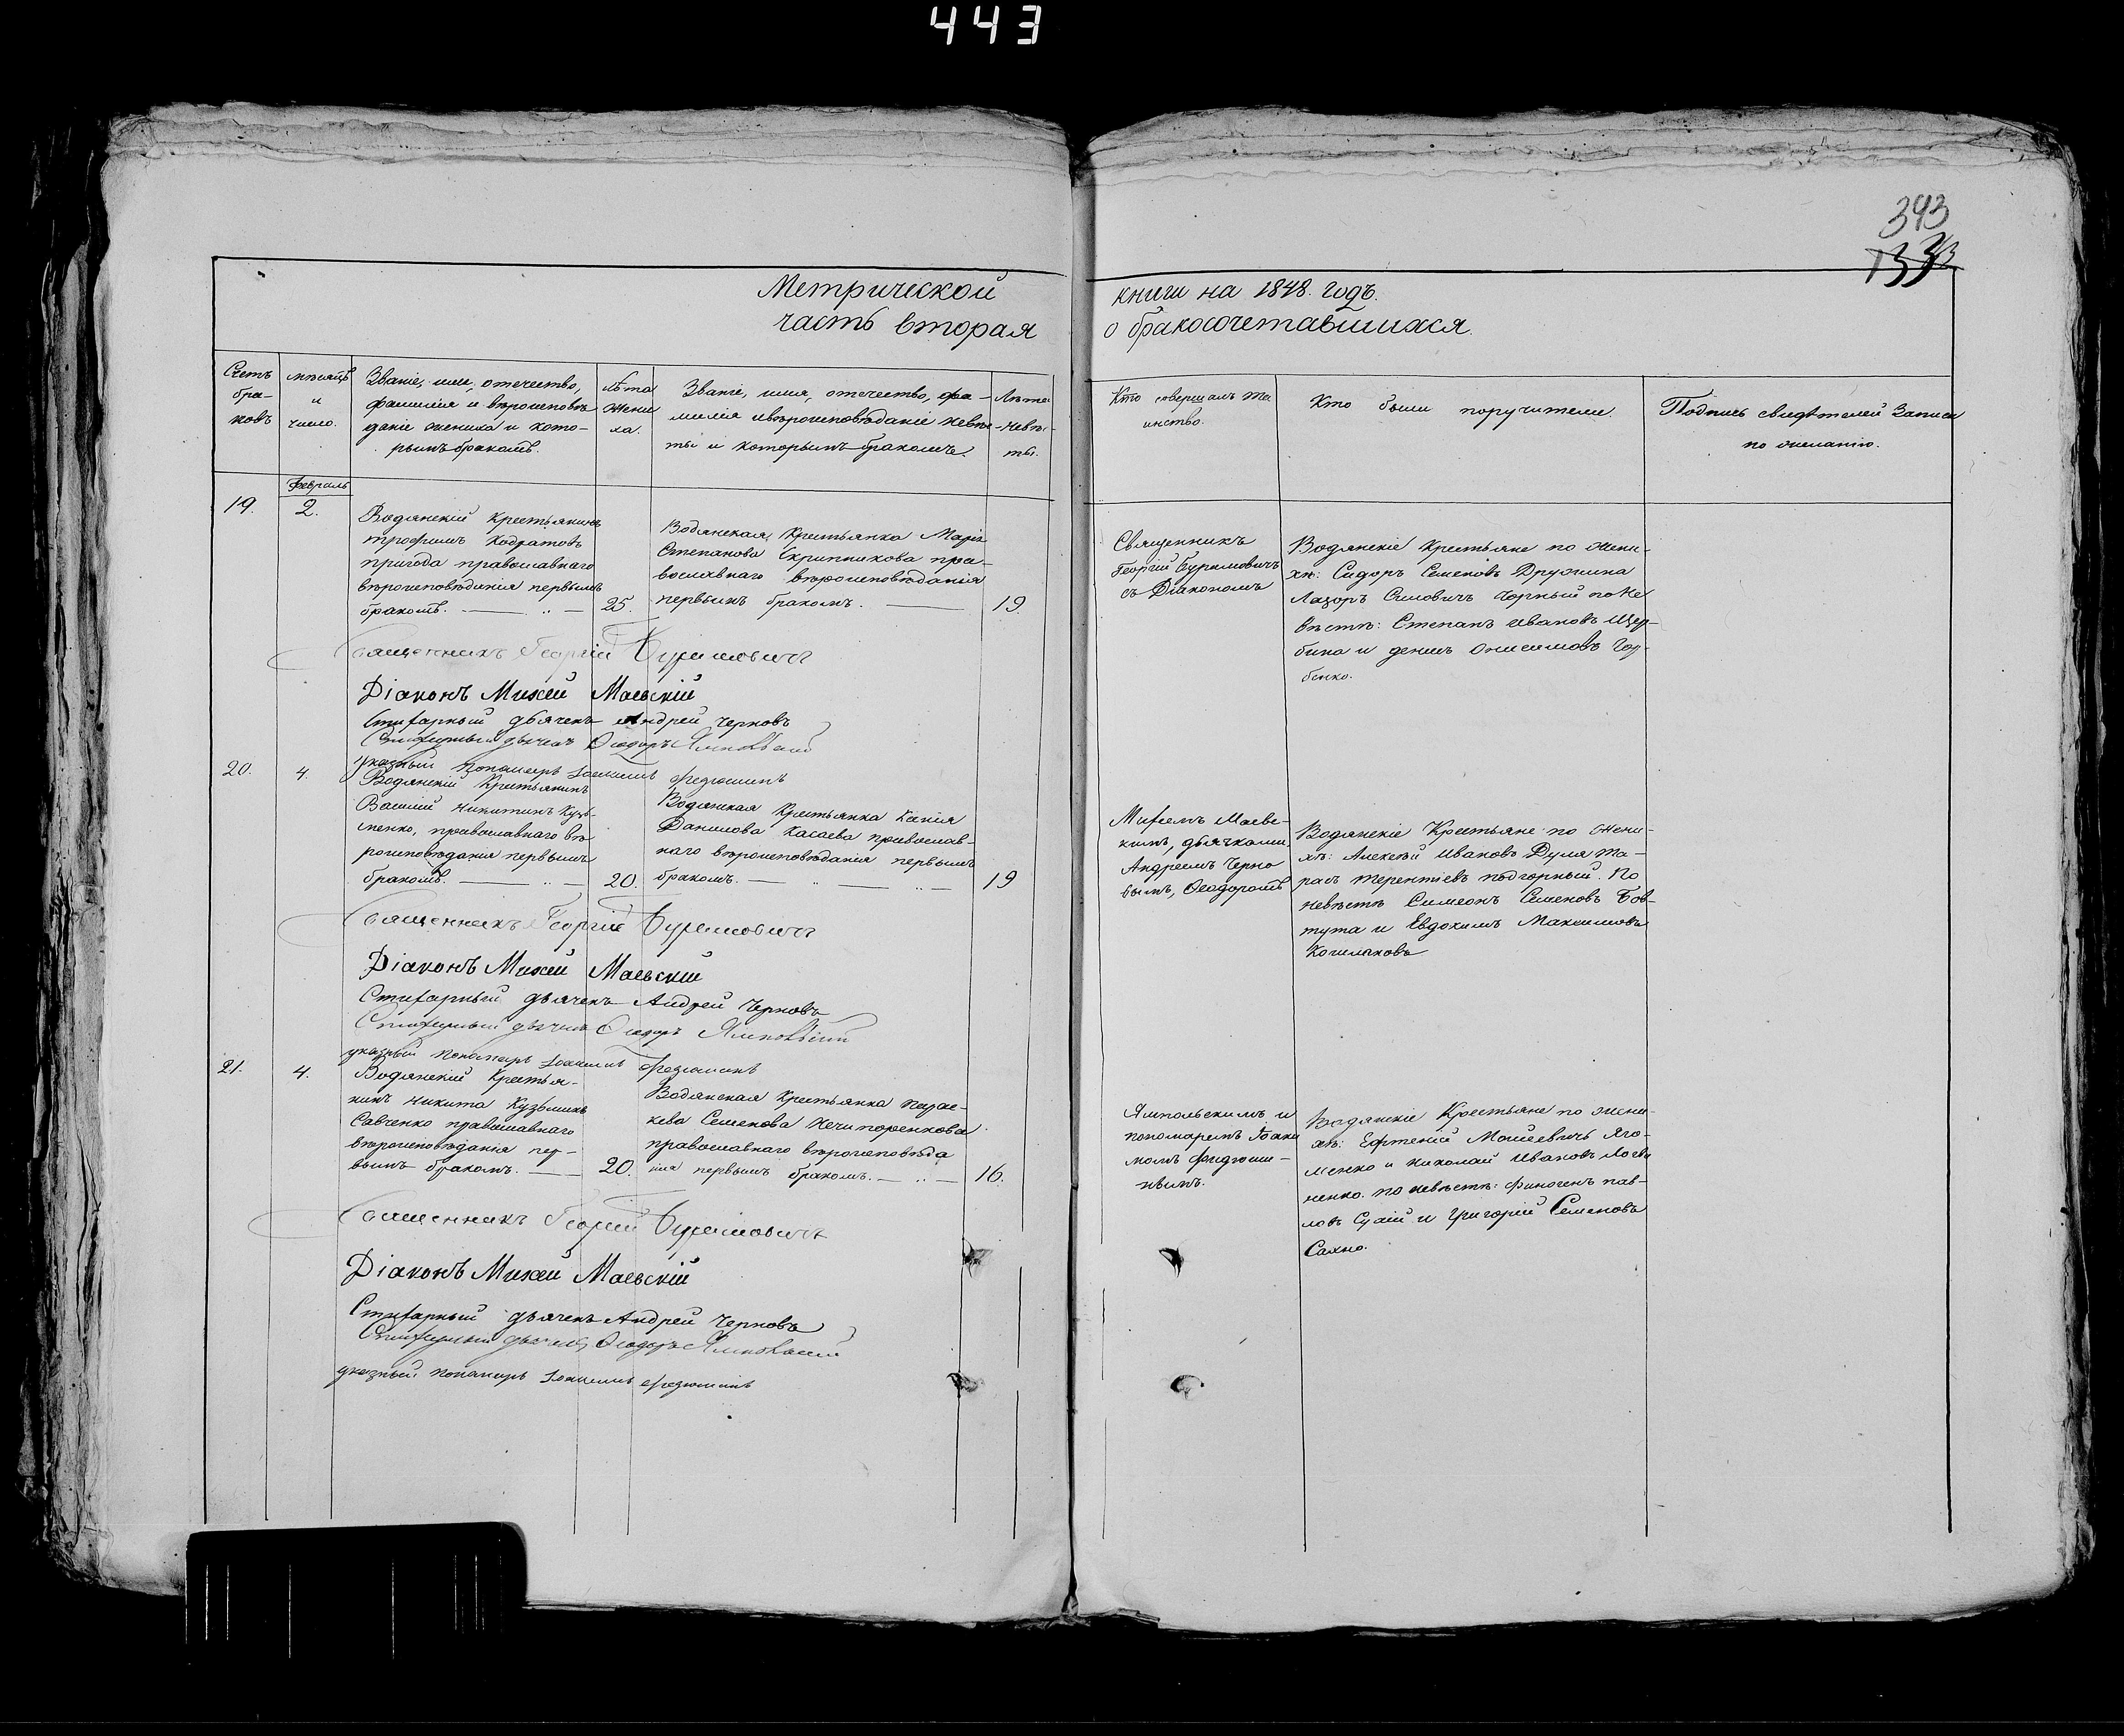 443
343
Метрической
часть вторая
книги на 1848. годъ.
о бракосочетавшихся.
Счетъ
бра-
ковъ
мѣсяцъ
и
число.
Званіе, имя, отечество,
фамилія и вѣроисповѣ
даніе жениха и кото-
рымъ бракомъ.
Лѣта
жени
ха.
Званіе, имя, отечество, фа-
милія и вѣроисповѣданіе невѣс-
ты и которымъ бракомъ.
Лѣта
невѣс-
ты.
Кто совершалъ та
инство.
Кто были поручители.
Подпись свидѣтелей записи
по желанію.
Февраль
19.
2.
Водянскій Крестьянинъ
трофимъ Кодратовъ
пригода православнаго
вѣроисповѣданія первымъ
бракомъ.
25.
Водянская Крестьянка Марія
Степанова Скрипникова пра-
вославнаго вѣроисповѣданія
первымъ бракомъ.
19.
Священникъ
Георгій Буримовичъ
съ Діакономъ
Водянскіе крестьяне по жени-
хѣ: Сидоръ Семеновъ Дружина
Лазорь Чорный по не
вѣстѣ: Степанъ Ивановъ Щер-
бина и денисъ Онисимовъ Гор-
бенко.
Священникъ Георгій Буримовичъ
Діаконъ Михей Маевскій
Стихарный дьячекъ Андрей Черновъ
Стихарный дьячекъ Ѳеодоръ Ямпольскій
указный пономарь Іоакимъ Федюшинъ
20.
4.
Водянскій Крестьянинъ
Василій Никитинъ Кузь-
менко, православнаго вѣ-
роисповѣданія первымъ
бракомъ.
20.
Водянская Крестьянка Ксенія
Данилова Касаева православ-
наго вѣроисповѣданія первымъ
бракомъ.
19
Михеемъ Маевс-
кимъ, дьячками
Андреемъ Черно
вымъ, Ѳеодоромъ
Водянскіе Крестьяне по жени-
хѣ: Алексѣй Ивановъ Дуля та-
расъ терентіевъ подгорный. По
невѣстѣ Симеонъ Семеновъ Бов-
тута и Евдокимъ Максимовъ
Священникъ Георгій Буримовичъ
Діаконъ Михей Маевскій
Стихарный дьячекъ Андрей Черновъ
Стихарный дьячекъ Ѳеодоръ Ямпольскій
указный пономарь Іоакимъ Федюшинъ
21.
4.
Водянскій Крестья-
нинъ Никита Кузьминъ
Савченко православнаго
вѣроисповѣданія пер-
вымъ бракомъ.
20.
Водянская Крестьянка парас-
кева Семенова Нечипоренкова
православнаго вѣроисповѣда
нія первымъ бракомъ.
16.
Ямпольскимъ и
пономаремъ Іоаки
момъ Федюши-
нымъ.
Водянскіе Крестьяне по жени-
хѣ: Евгеній Моисеевичъ Яго-
менко и Николай Ивановъ Логви
ненко. по невѣстѣ: финогенъ пав-
ловъ Сухій и Григорій Семеновъ
Сахно.
Священникъ Георгій Буримовичъ
Діаконъ Михей Маевскій
Стихарный дьячекъ Андрей Черновъ
Стихарный дьячекъ Ѳеодоръ Ямпольскій
указный пономарь Іоакимъ Федюшинъ